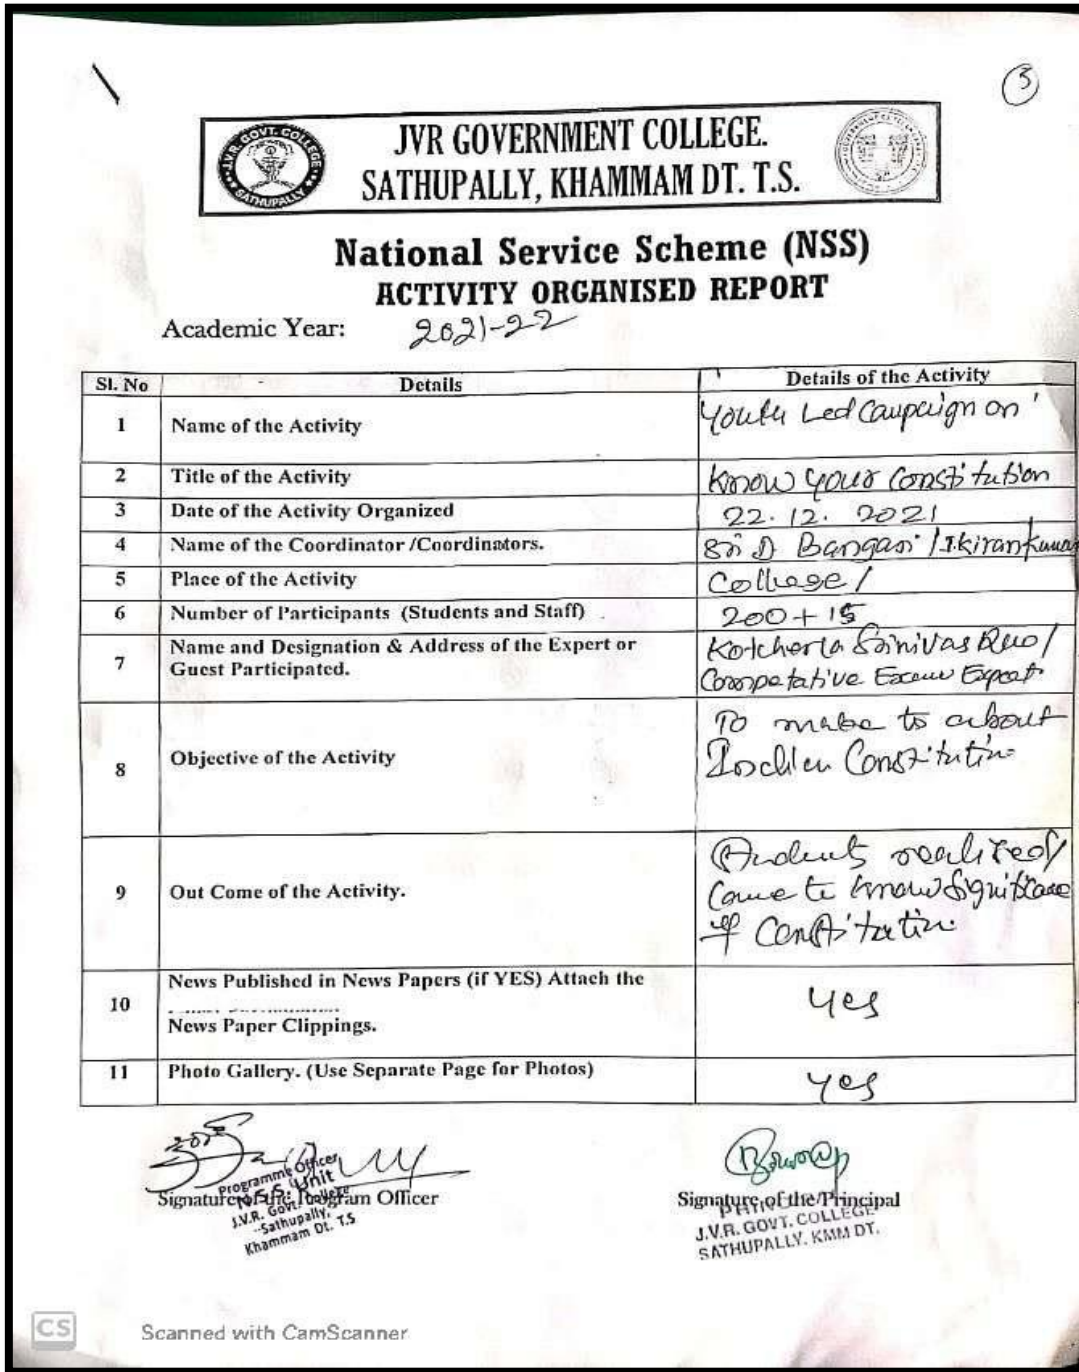 3
JVR GOVT. COLLEGE
SATHUPALLY
JVR GOVERNMENT COLLEGE.
SATHUPALLY, KHAMMAM DT. T.S.
National Service Scheme (NSS)
ACTIVITY ORGANISED REPORT
Academic Year: 2021-22
Sl. No Details Details of the Activity
1 Name of the Activity Youth Led Campaign on '
2 Title of the Activity Know your Constitution
3 Date of the Activity Organized 22.12.2021
4 Name of the Coordinator /Coordinators. Sri D Bangari / I. Kirankumar
5 Place of the Activity College /
6 Number of Participants (Students and Staff) 200 + 15
7 Name and Designation & Address of the Expert or
Guest Participated.
Kotcherla Srinivas Rao /
Competative Exam Expert
8 Objective of the Activity
To make to about
Indian Constitution
9 Out Come of the Activity.
Students realized /
Came to know Significance
of Constitution
10 News Published in News Papers (if YES) Attach the
News Paper Clippings.
Yes
11 Photo Gallery. (Use Separate Page for Photos) Yes
Signature of the Program Officer
Programme Officer
N.S.S. Unit
J.V.R. Govt. College
Sathupally,
Khammam Dt. T.S
Signature of the Principal
J.V.R. GOVT. COLLEGE
SATHUPALLY. KMM DT.
CS Scanned with CamScanner